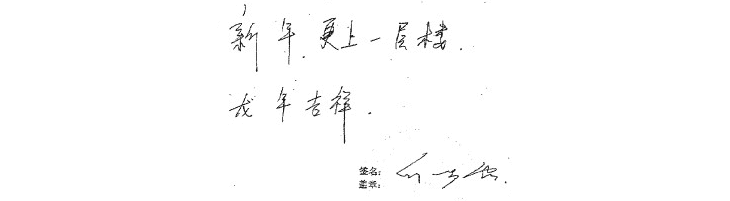 新年.更上一层楼.
戌年吉祥.
签名:
盖章: